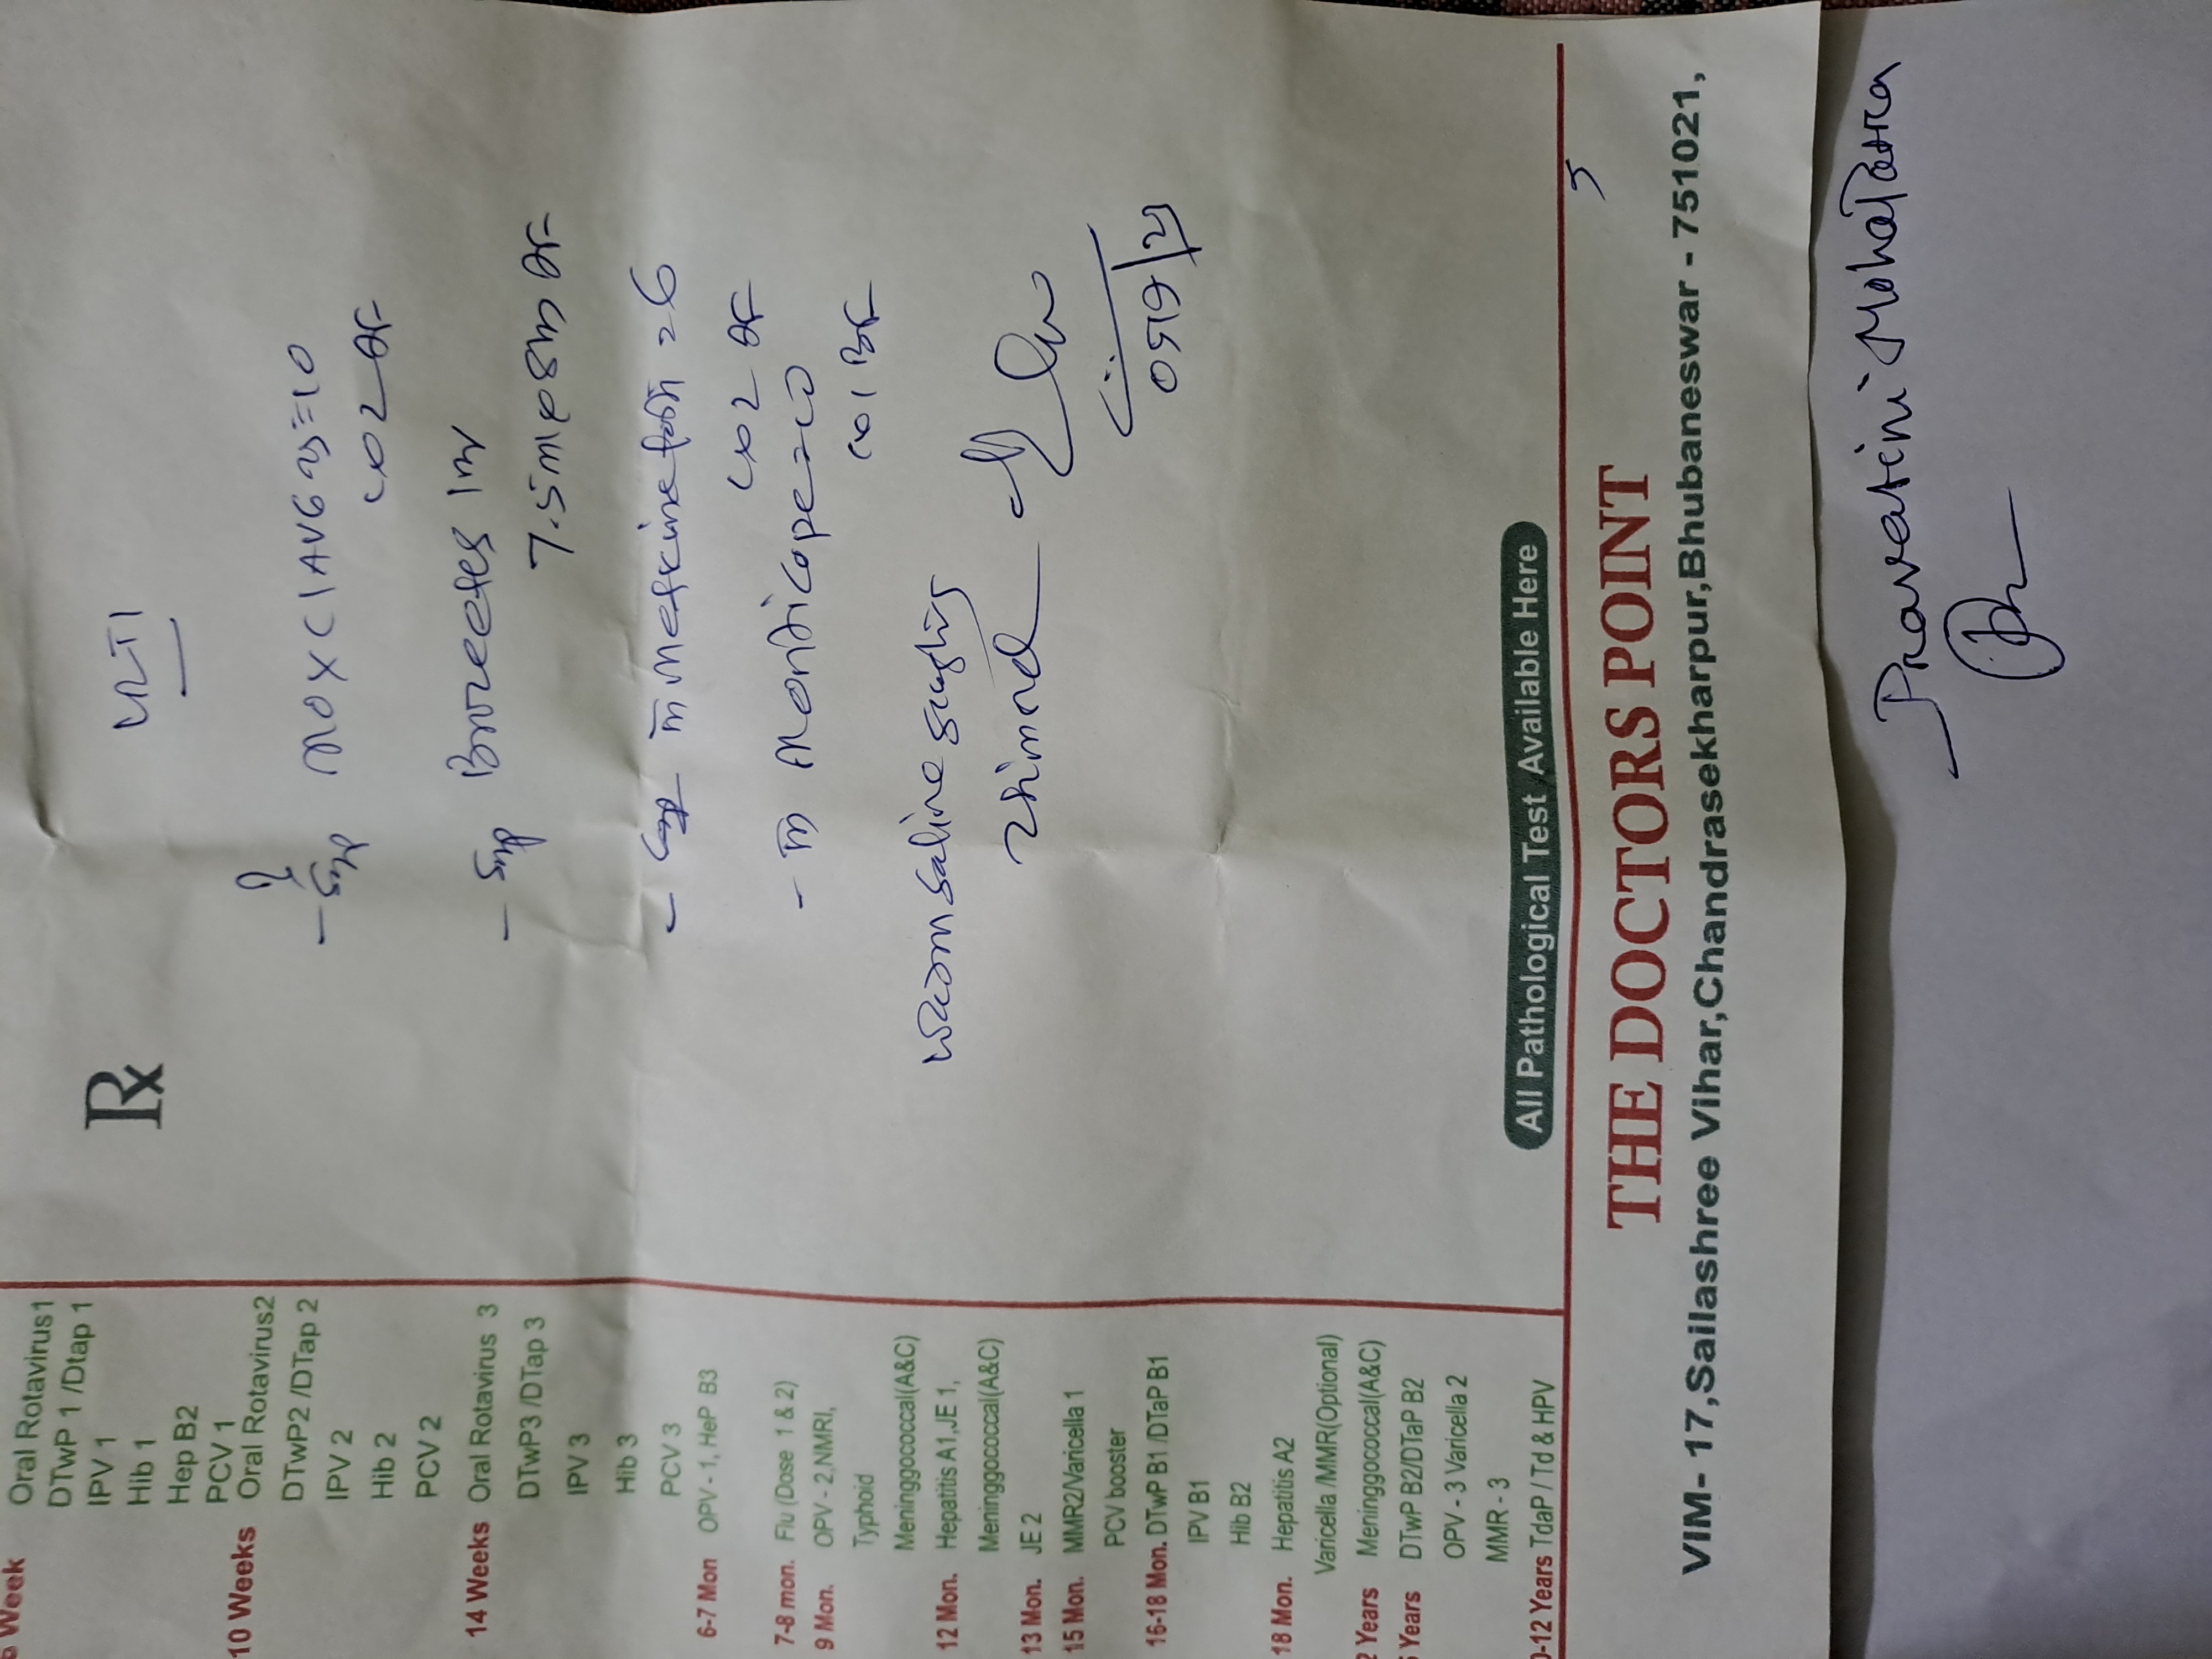 Week Oral Rotavirus1
DTwP 1 /Dtap 1
IPV 1
Hib 1
Hep B2
PCV 1
10 Weeks Oral Rotavirus2
DTwP2 /DTap 2
IPV 2
Hib 2
PCV 2
14 Weeks Oral Rotavirus 3
DTwP3 /DTap 3
IPV 3
Hib 3
PCV 3
6-7 Mon OPV - 1, HeP B3
7-8 mon. Flu (Dose 1 & 2)
9 Mon. OPV - 2,NMRI,
Typhoid
Meninggococcal(A&C)
12 Mon. Hepatitis A1,JE 1,
Meninggococcal(A&C)
13 Mon. JE 2
15 Mon. MMR2/Varicella 1
PCV booster
16-18 Mon. DTwP B1 /DTaP B1
IPV B1
Hib B2
18 Mon. Hepatitis A2
Varicella /MMR(Optional)
2 Years Meninggococcal(A&C)
Years DTwP B2/DTaP B2
OPV - 3 Varicella 2
MMR - 3
0-12 Years TdaP / Td & HPV
Rx
URTI
- Syp MOXCLAV =10
- Syp
7.5ml
- =6
- Monticope =10
Warm saline gargling
All Pathological Test Available Here
THE DOCTORS POINT
VIM- 17,Sailashree Vihar,Chandrasekharpur,Bhubaneswar - 751021,
Pravatini Mohapatra